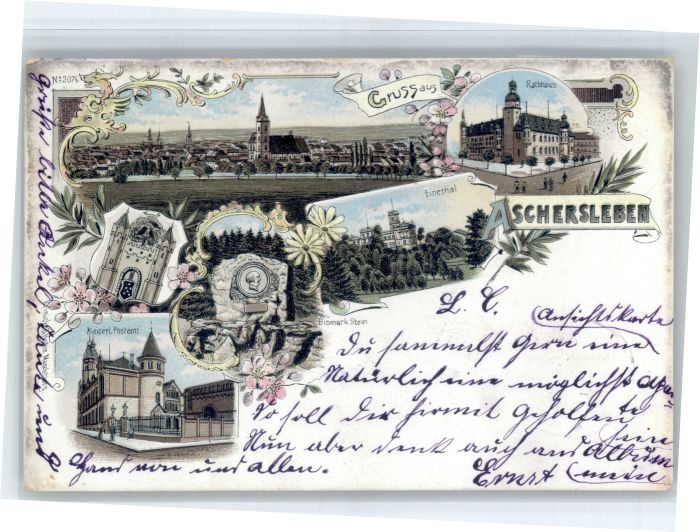 No 2076
Gruss aus
Rathhaus
Einethal
ASCHERSLEBEN
Bismark Stein
Kaiserl. Postamt
L. C.
Ansichtskarte
Du sammelst gern eine
Natürlich eine möglichst
So soll dir hirmit geholfen
sein
Nun aber denk auch ans Album
Ernst
mein
Grüße bitte Onkel, Tante und
Hand von uns allen.